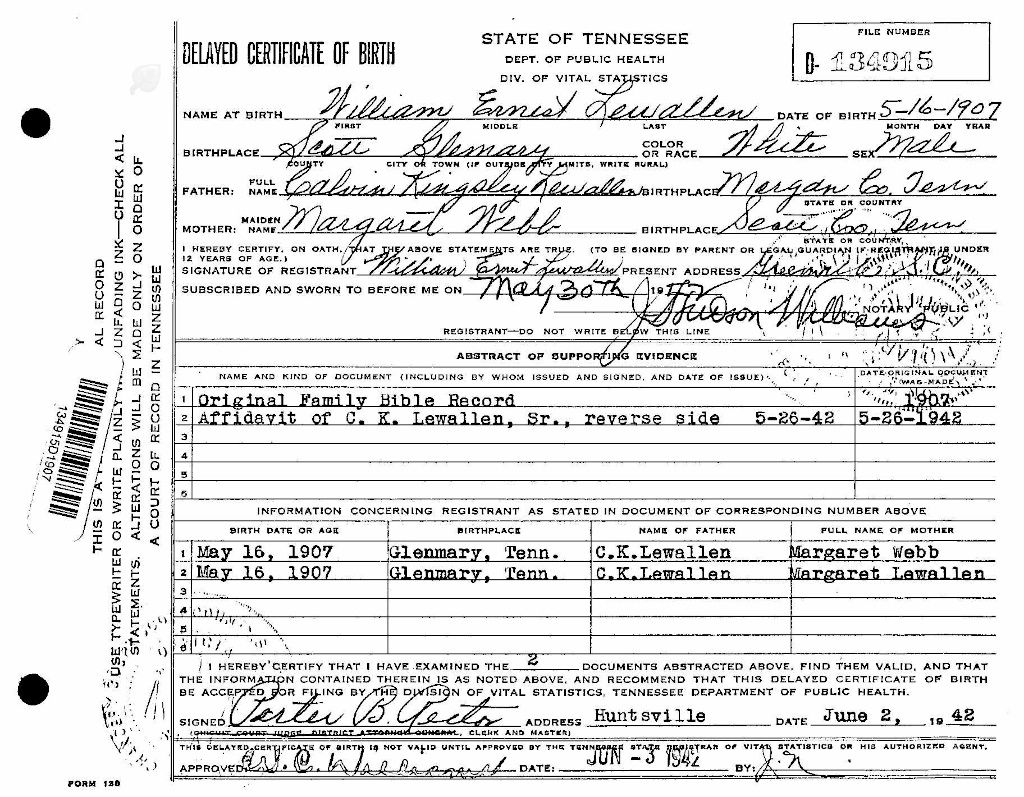 DELAYED CERTIFICATE OF BIRTH
STATE OF TENNESSEE
DEPT. OF PUBLIC HEALTH
DIV. OF VITAL STATISTICS
FILE NUMBER
D- 134915
NAME AT BIRTH William Ernest Lewallen DATE OF BIRTH 5-16-1907
FIRST MIDDLE LAST MONTH DAY YEAR
BIRTHPLACE Scott Glenmary COLOR OR RACE White SEX Male
COUNTY CITY OR TOWN (IF OUTSIDE CITY LIMITS, WRITE RURAL)
FATHER: FULL NAME Calvin Kingsley Lewallen BIRTHPLACE Morgan Co. Tenn
STATE OR COUNTRY
MOTHER: MAIDEN NAME Margaret Webb BIRTHPLACE Scott Co., Tenn
STATE OR COUNTRY
I HEREBY CERTIFY, ON OATH, THAT THE ABOVE STATEMENTS ARE TRUE. (TO BE SIGNED BY PARENT OR LEGAL GUARDIAN IF REGISTRANT IS UNDER
12 YEARS OF AGE.)
SIGNATURE OF REGISTRANT William Ernest Lewallen PRESENT ADDRESS S.C.
SUBSCRIBED AND SWORN TO BEFORE ME ON May 30th 1942
NOTARY PUBLIC
REGISTRANT—DO NOT WRITE BELOW THIS LINE
ABSTRACT OF SUPPORTING EVIDENCE
NAME AND KIND OF DOCUMENT (INCLUDING BY WHOM ISSUED AND SIGNED, AND DATE OF ISSUE) DATE ORIGINAL DOCUMENT WAS MADE
1 Original Family Bible Record 1907
2 Affidavit of C. K. Lewallen, Sr., reverse side 5-26-42 5-26-1942
3
4
5
6
INFORMATION CONCERNING REGISTRANT AS STATED IN DOCUMENT OF CORRESPONDING NUMBER ABOVE
BIRTH DATE OR AGE BIRTHPLACE NAME OF FATHER FULL NAME OF MOTHER
1 May 16, 1907 Glenmary, Tenn. C.K.Lewallen Margaret Webb
2 May 16, 1907 Glenmary, Tenn. C.K.Lewallen Margaret Lewallen
3
4
5
6
I HEREBY CERTIFY THAT I HAVE EXAMINED THE 2 DOCUMENTS ABSTRACTED ABOVE, FIND THEM VALID, AND THAT
THE INFORMATION CONTAINED THEREIN IS AS NOTED ABOVE, AND RECOMMEND THAT THIS DELAYED CERTIFICATE OF BIRTH
BE ACCEPTED FOR FILING BY THE DIVISION OF VITAL STATISTICS, TENNESSEE DEPARTMENT OF PUBLIC HEALTH.
SIGNED Porter B. Rector ADDRESS Huntsville DATE June 2, 1942
(CIRCUIT COURT JUDGE, DISTRICT ATTORNEY GENERAL, CLERK AND MASTER)
THIS DELAYED CERTIFICATE OF BIRTH IS NOT VALID UNTIL APPROVED BY THE TENNESSEE STATE REGISTRAR OF VITAL STATISTICS OR HIS AUTHORIZED AGENT.
APPROVED: DATE: JUN -3 1942 BY: J.N
FORM 130
THIS IS A AL RECORD
USE TYPEWRITER OR WRITE PLAINLY UNFADING INK—CHECK ALL
STATEMENTS. ALTERATIONS WILL BE MADE ONLY ON ORDER OF
A COURT OF RECORD IN TENNESSEE
134915D1907